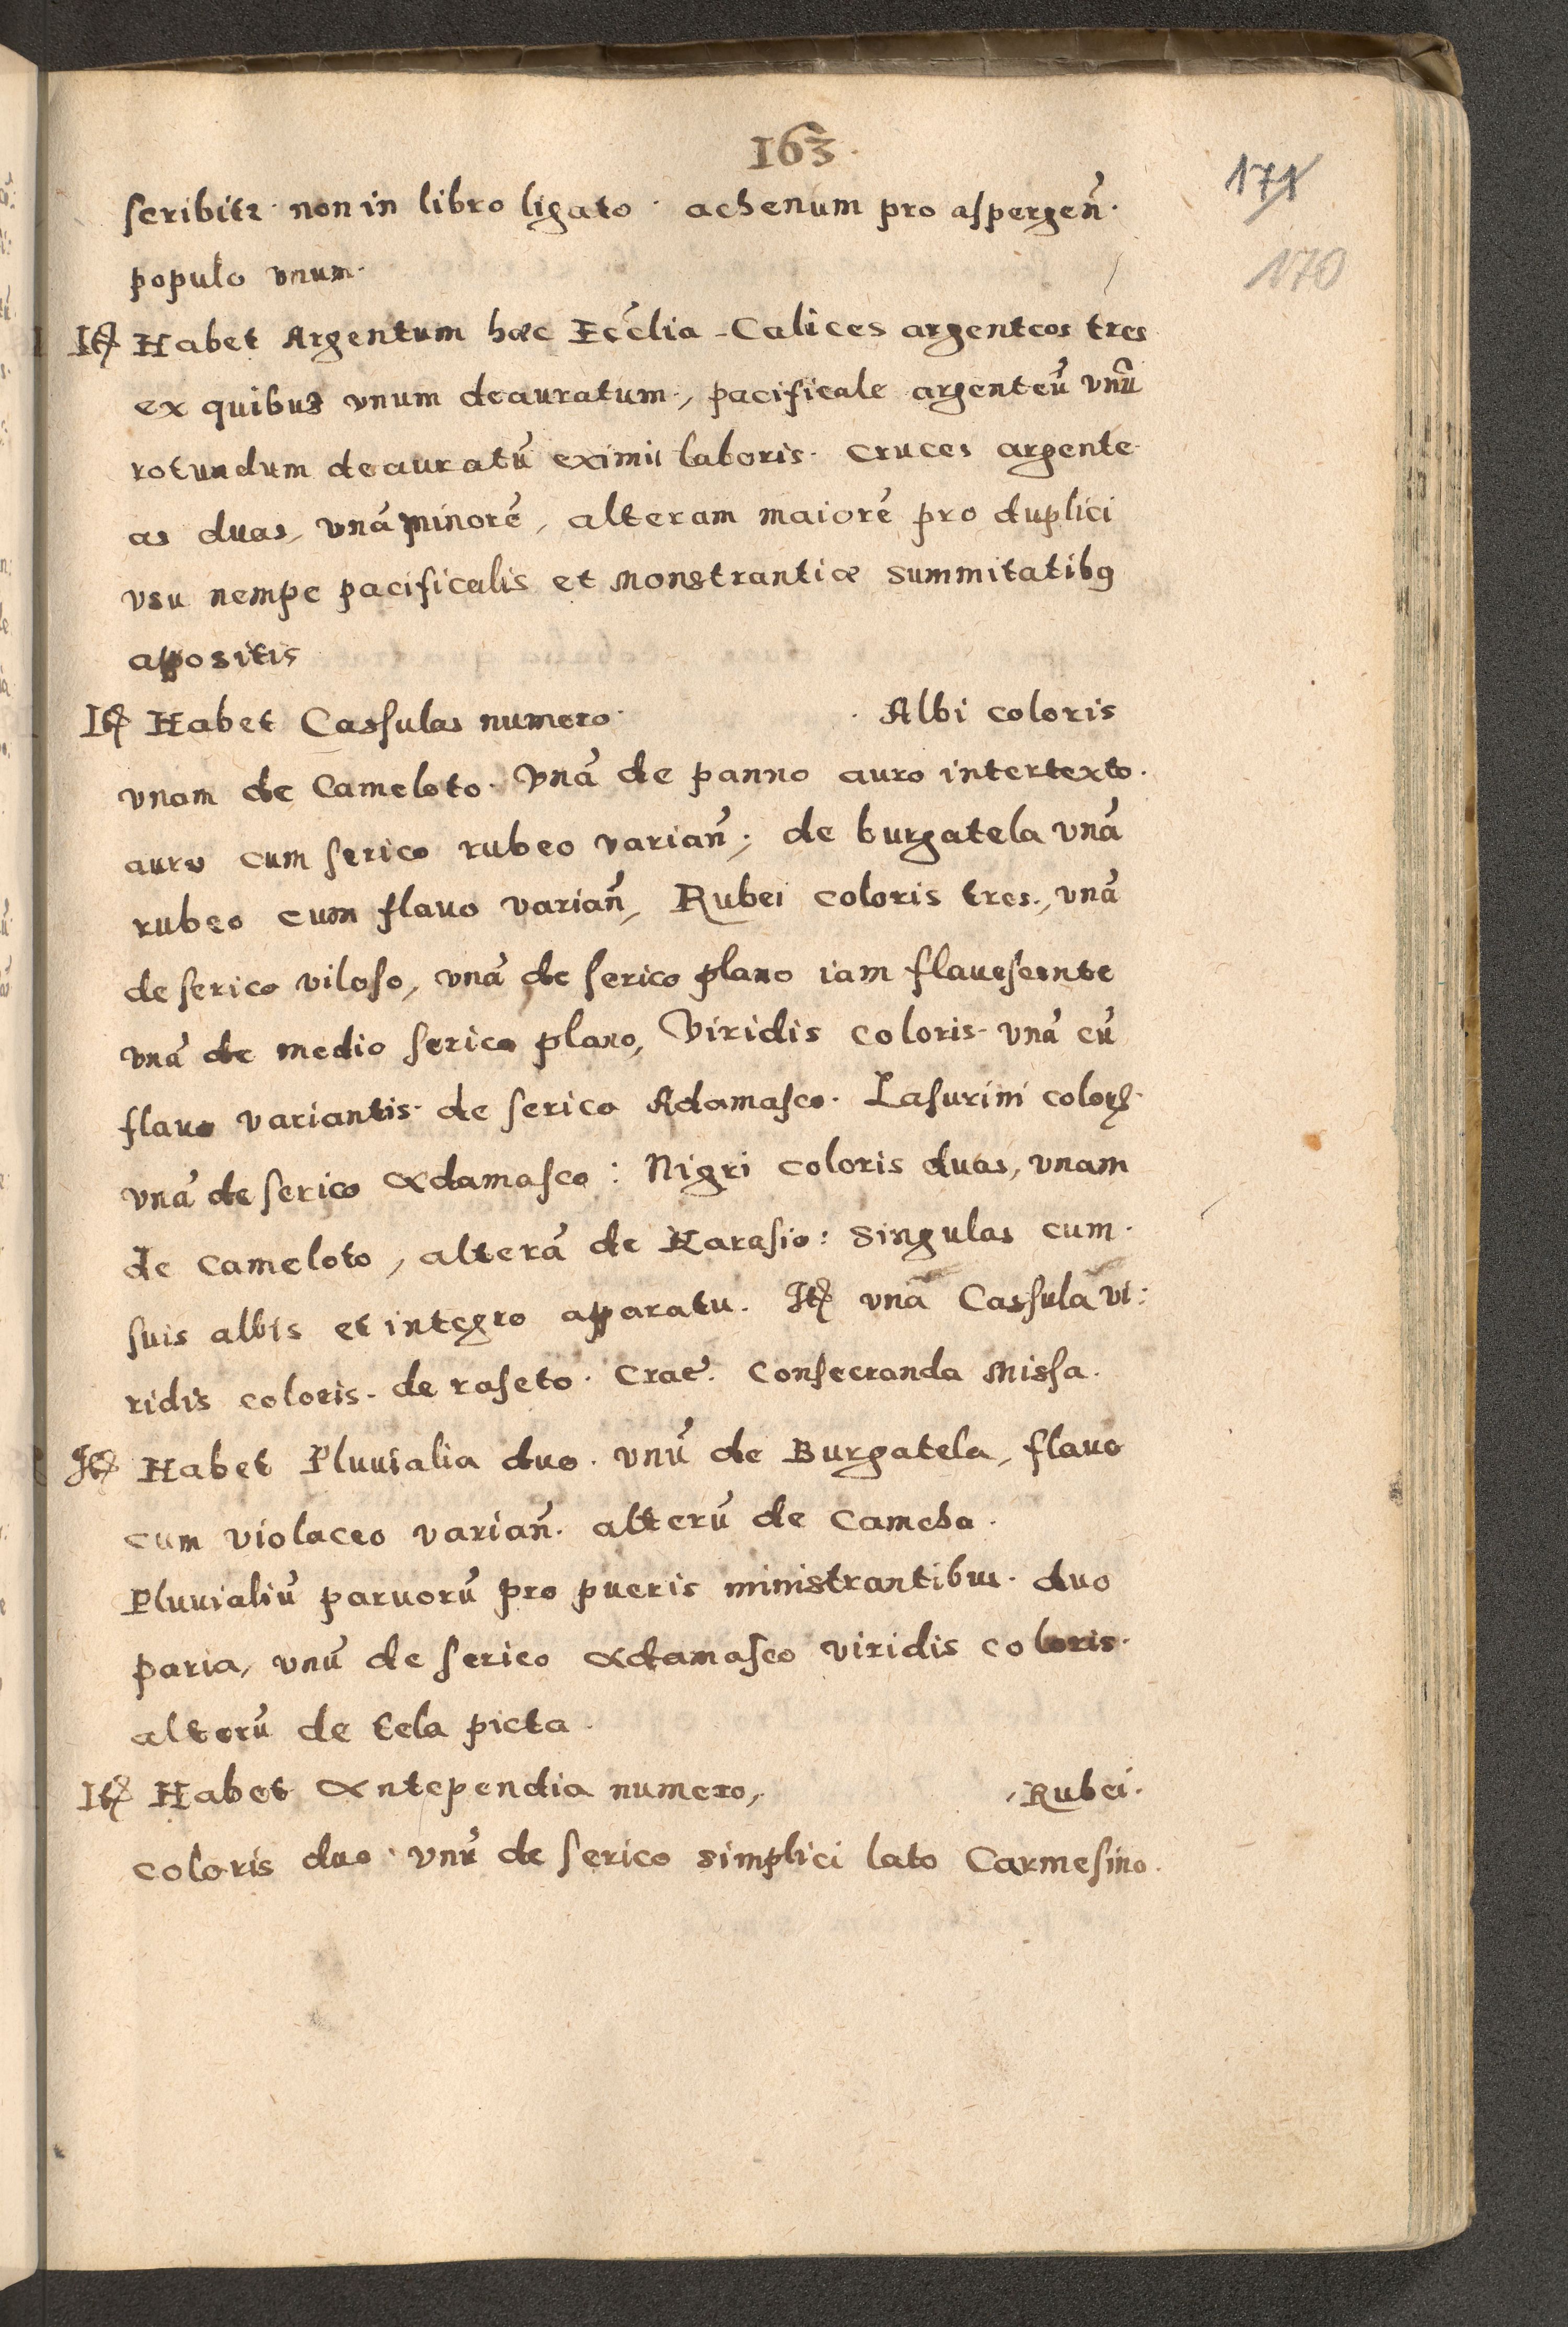 163.
171
170
scribitr. non in libro ligato. achenum pro aspergeñ.
populo vnum.
Itẽ Habet Argentum hæc Eccĺia - Calices argenteos tres
ex quibus vnum deauratum, pacificale argenteũ vnũ
rotundum deauratũ eximii laboris. cruces argente-
as duas, vnã minorẽ, alteram maiorẽ pro duplici
vsu nempe pacificalis et monstrantiæ summitatibꝰ
appositis
Itẽ Habet Cassulas numero. Albi coloris
vnam de Cameloto. Vnã de panno auro intertexto.
auro cum serico rubeo variañ; de burgatela vnã
rubeo cum flauo variañ, Rubei coloris tres, vnã
de serico viloso, vnã de serico plano iam flauescente
vnã de medio serico plano, Viridis coloris. vnã cũ
flauo variantis. de serico Adamasco. Lasurini coloris.
vnã de serico adamasco: Nigri coloris duas, vnam
de cameloto, alterã de Karasio: singulas cum.
suis albis et integro apparatu. Itẽ vnã Cassulã vi:
ridis coloris. de raseto. Crat̃. Consecranda Missa.
Itẽ Habet Pluuialia duo. vnũ de Burgatela, flauo
cum violaceo variañ. alterũ de Camcha.
Pluuialiũ paruorũ pro pueris ministrantibus. duo
paria, vnũ de serico adamasco viridis coloris.
alterũ de tela picta.
Itẽ Habet antependia numero, Rubei.
coloris duo. vnũ de serico simplici lato Carmesino.